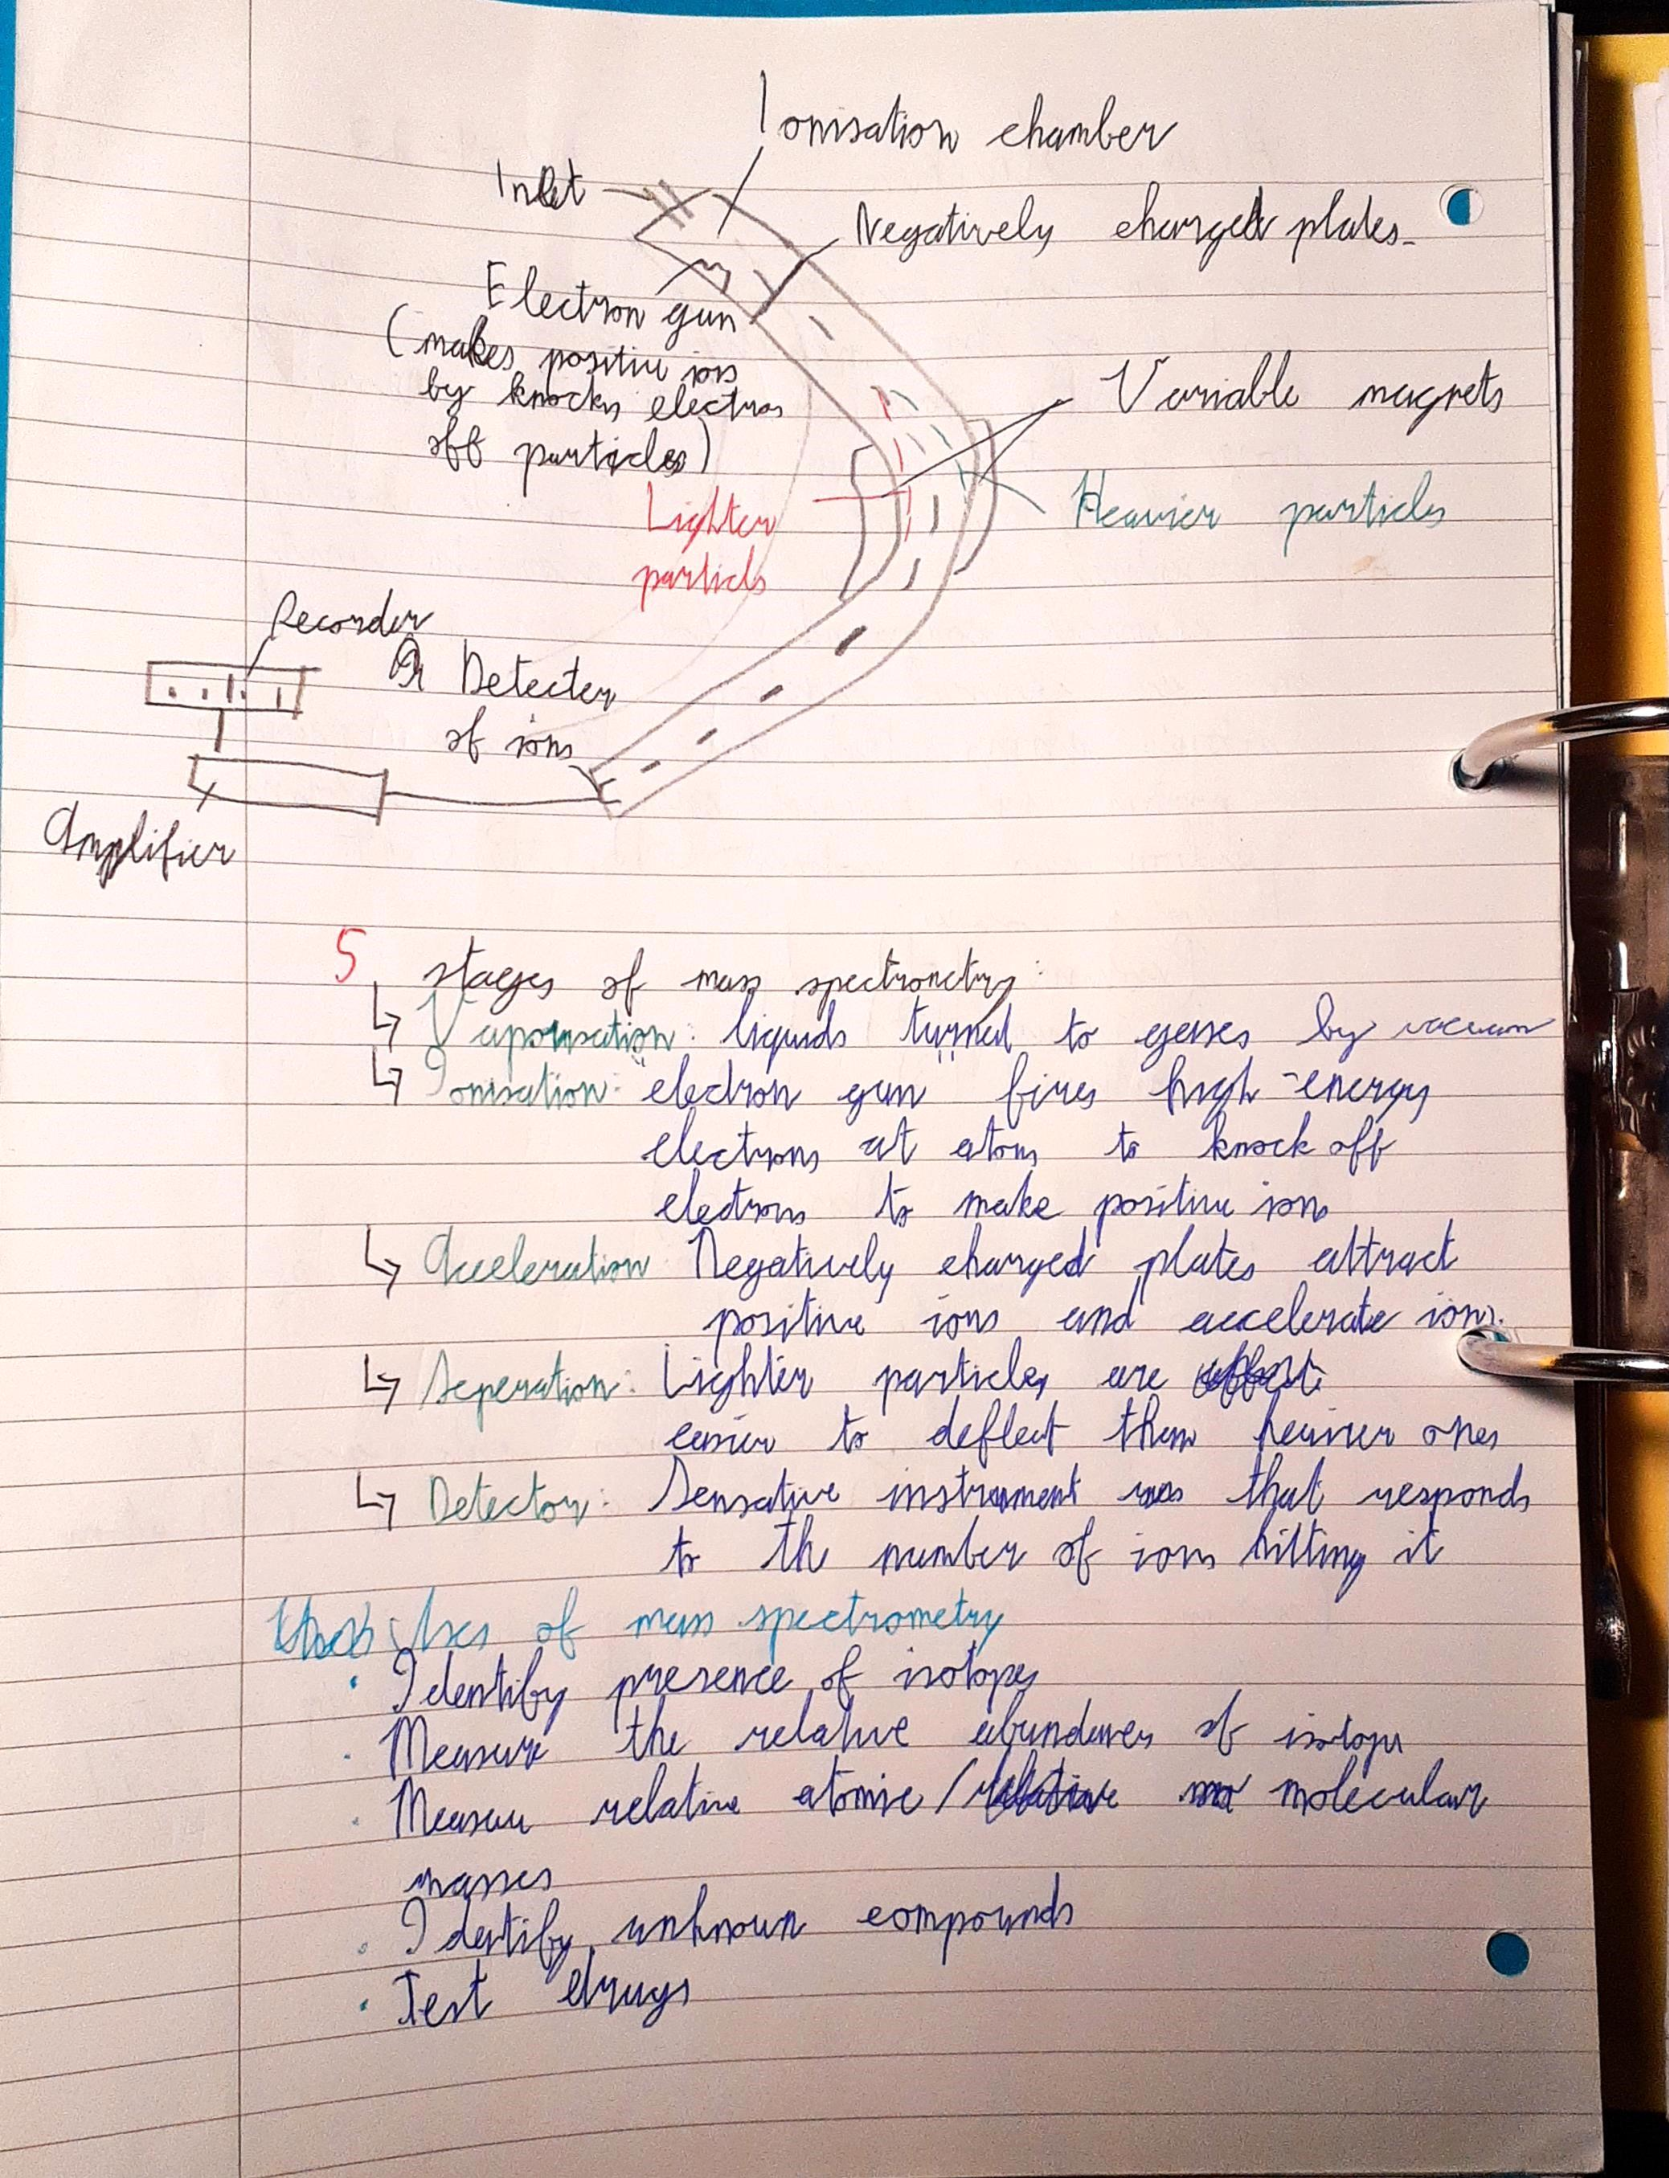 Ionisation chamber
Inlet
Negatively charged plates.
Electron gun
(makes positive ions
by knocks electros
off particles)
Variable magnets
Lighter
particls
Heavier particles
Recorder
Detecter
of ions
Amplifier
5 stages of mass spectrometry:
↳ Vaporisation: liquids turned to gasses by vacuum
↳ Ionisation: "electron gun" fires high-energy
electrons at atoms to knock off
electrons to make positive ions
↳ Acceleration Negatively charged plates attract
positive ions and accelerate ions.
↳ Seperation: Lighter particles are
easier to deflect than heavier ones
↳ Detector: Sensative instrument that responds
to the number of ions hitting it
Uses of mass spectrometry
· Identify presence of isotopes
· Measure the relative of isotopes
· Measure relative atomic / molecular
masses
· Identify unknown compounds
· Test drugs